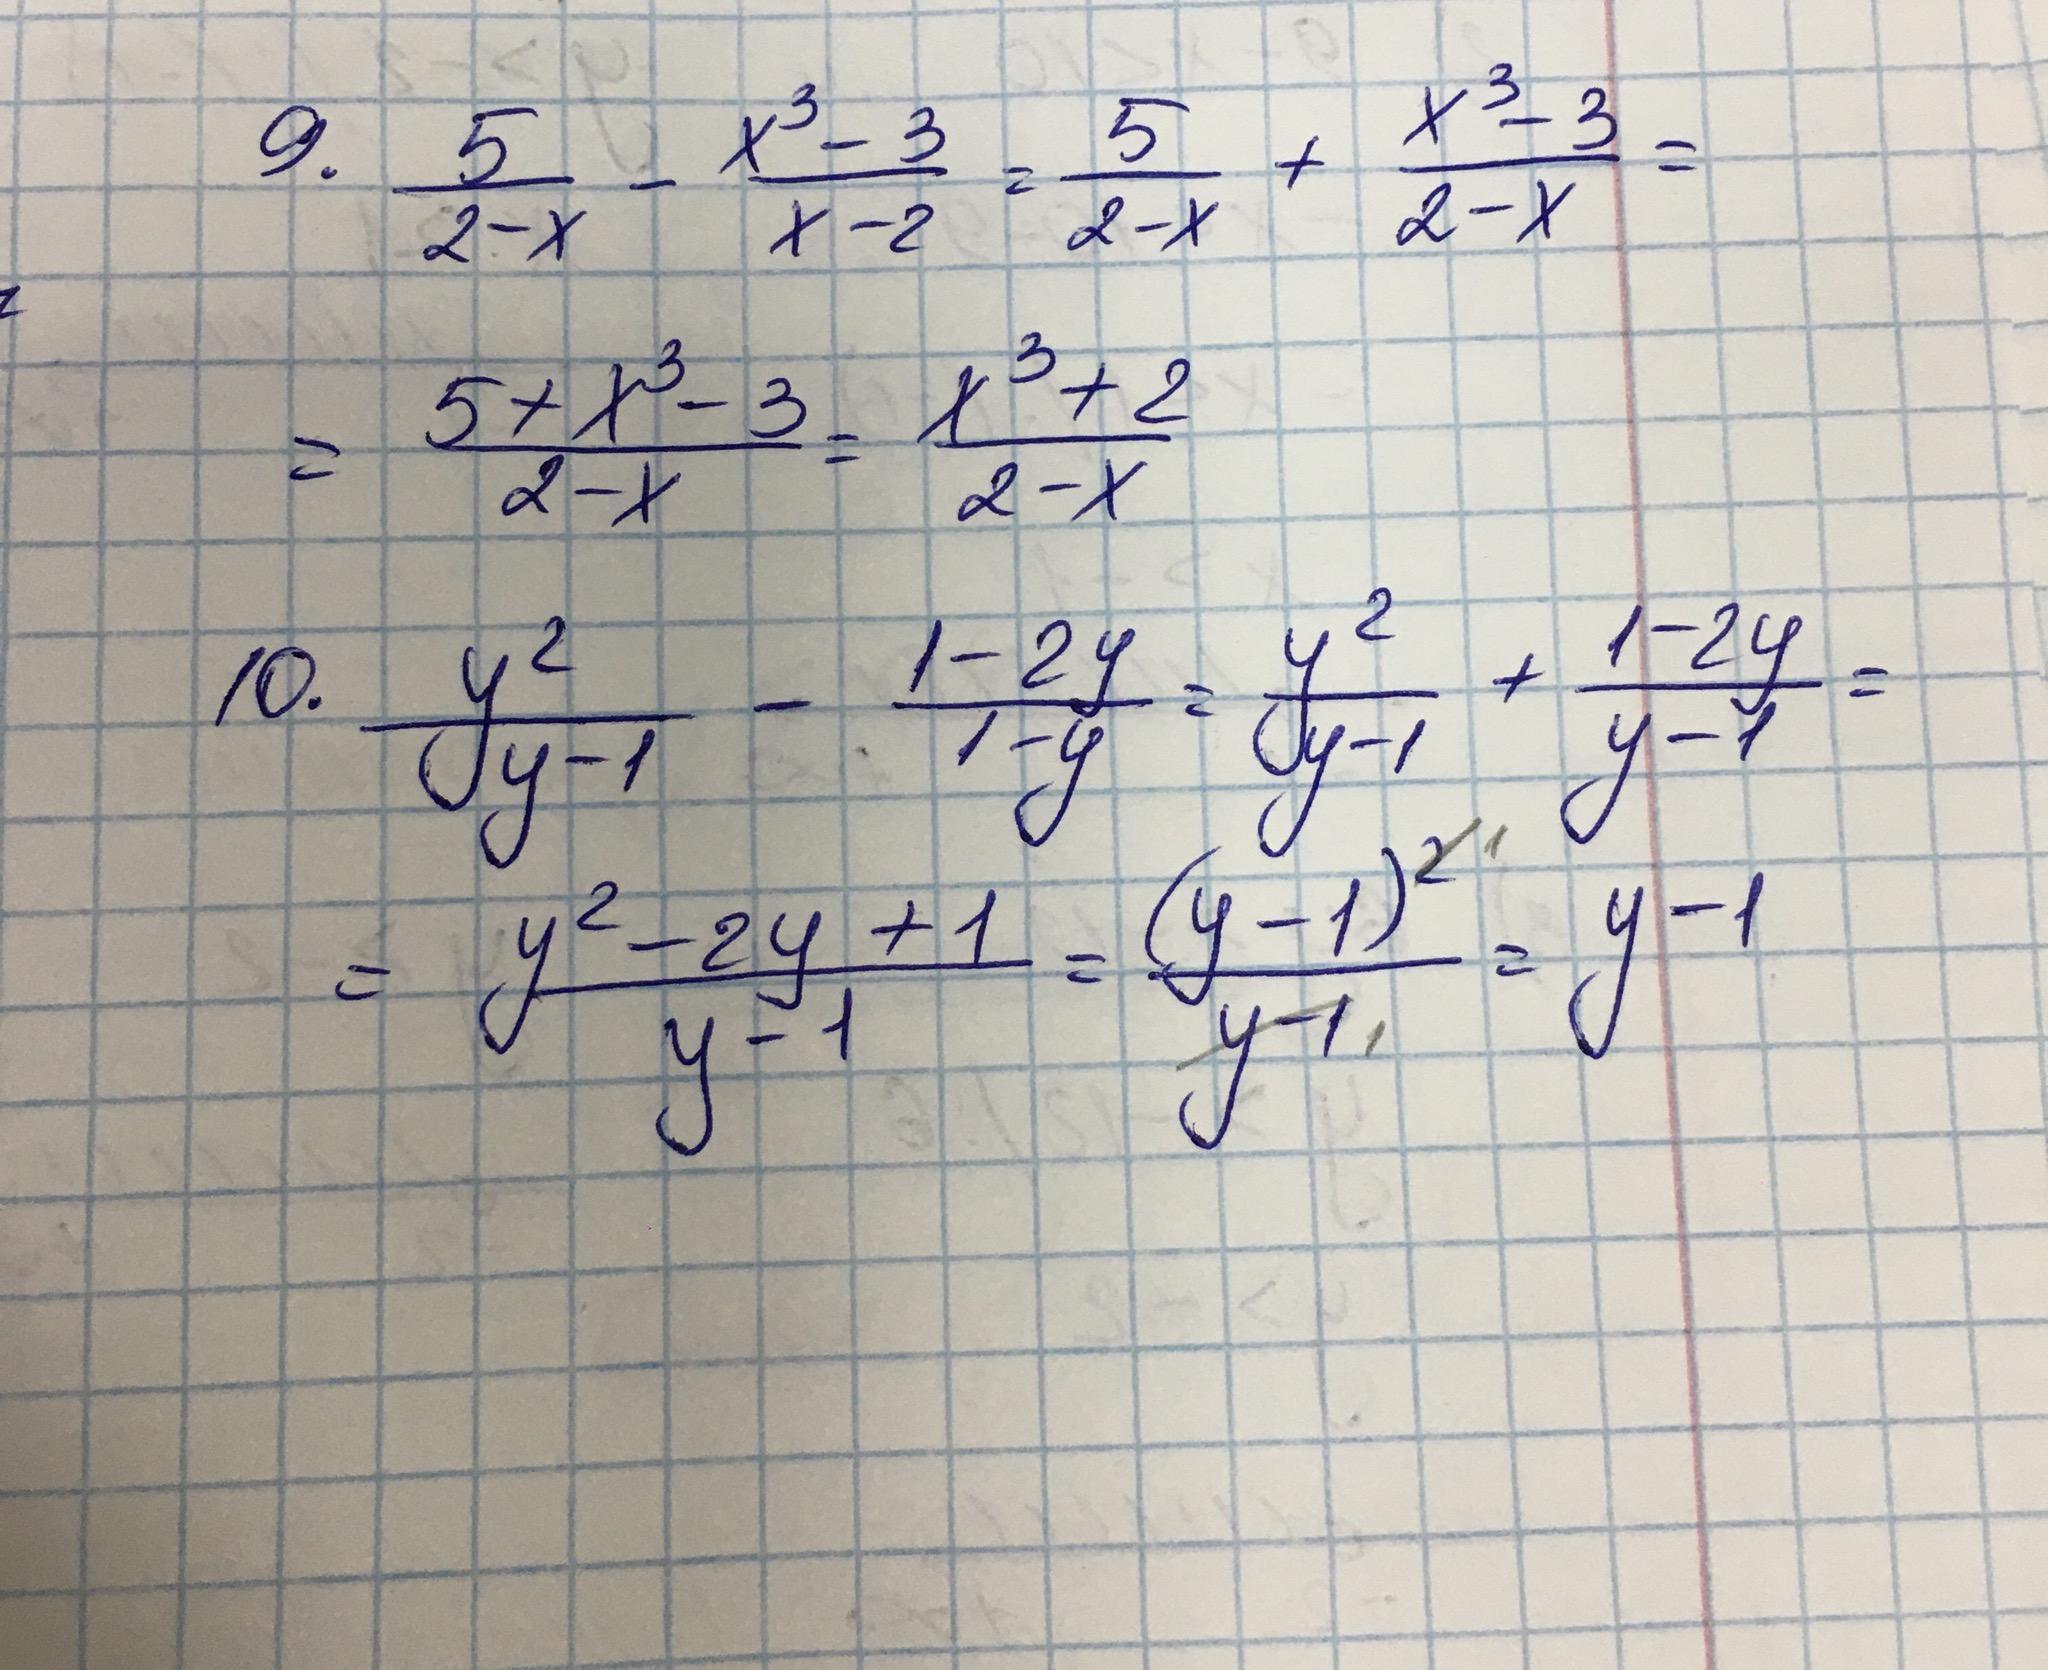 9. 5/(2-x) - (x³-3)/(x-2) = 5/(2-x) + (x³-3)/(2-x) =
= (5+x³-3)/(2-x) = (x³+2)/(2-x)
10. y²/(y-1) - (1-2y)/(1-y) = y²/(y-1) + (1-2y)/(y-1) =
= (y²-2y+1)/(y-1) = (y-1)²/(y-1) = y-1